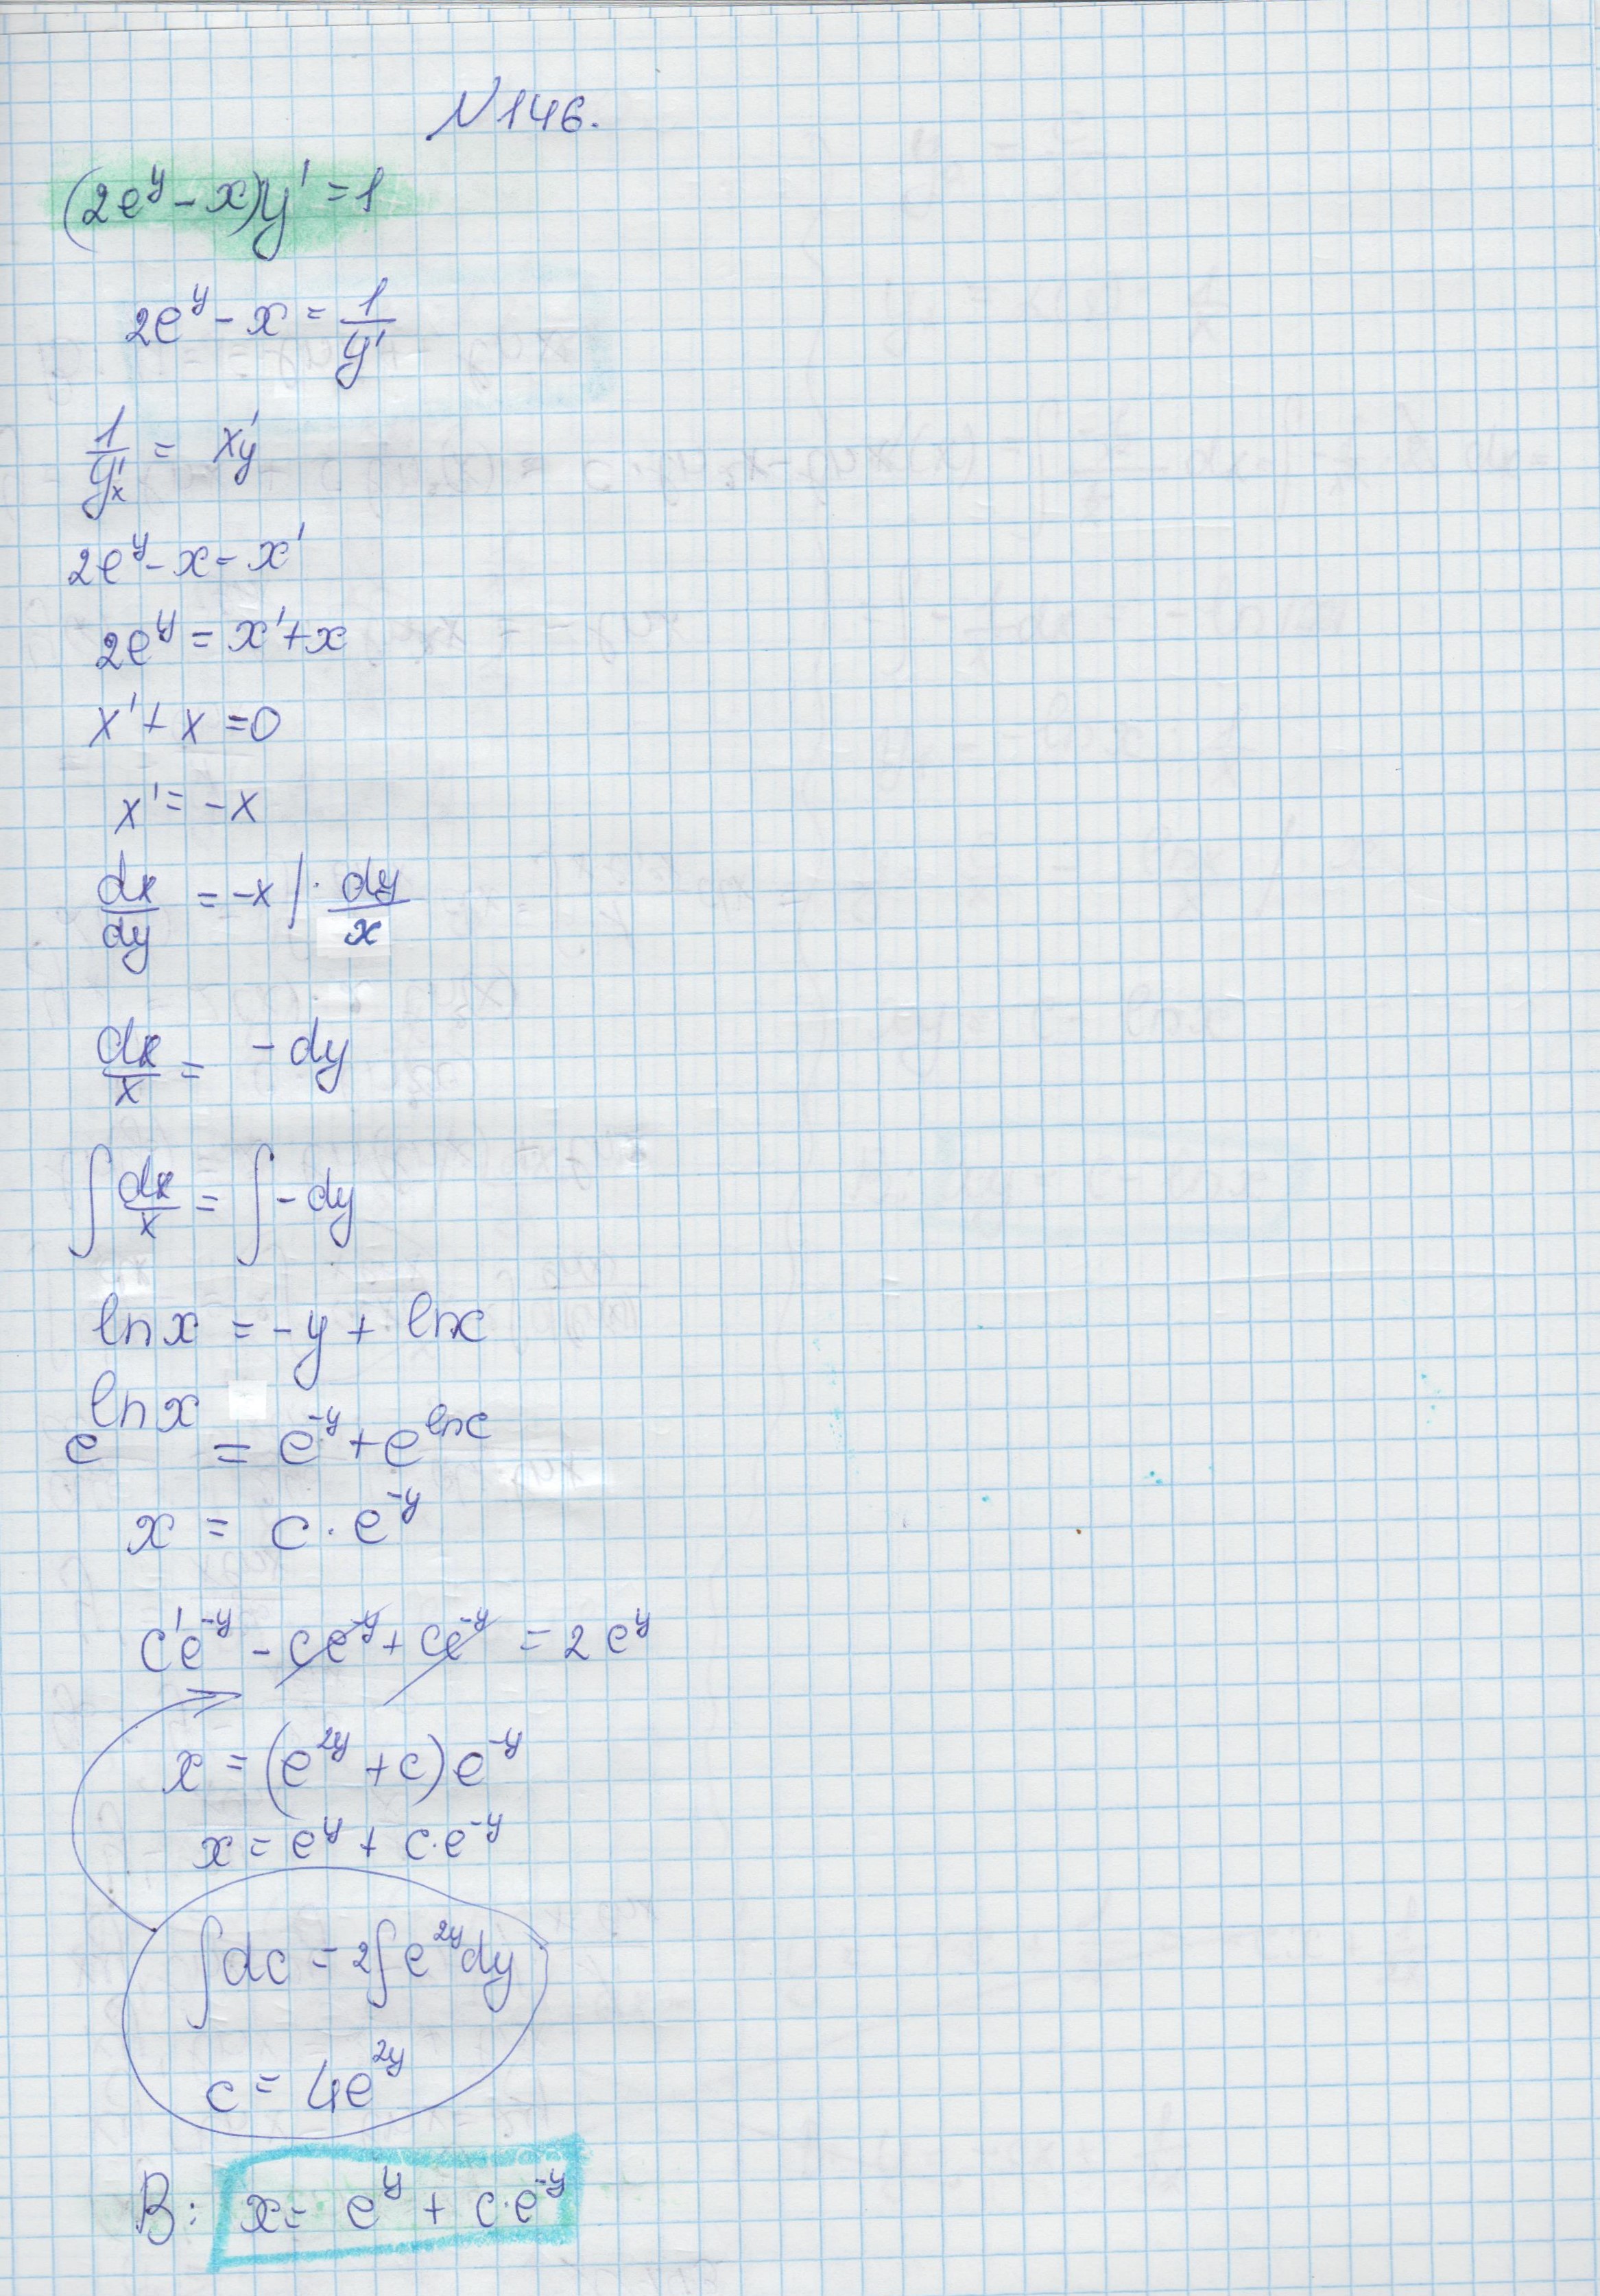 №146.
(2e^y - x)y' = 1
2e^y - x = 1/y'
1/y'_x = x'_y
2e^y - x = x'
2e^y = x' + x
x' + x = 0
x' = -x
dx/dy = -x | · dy/x
dx/x = -dy
∫ dx/x = ∫ -dy
ln x = -y + ln c
e^(ln x) = e^(-y) + e^(ln c)
x = c · e^(-y)
c'e^(-y) - ce^(-y) + ce^(-y) = 2e^y
x = (e^(2y) + c)e^(-y)
x = e^y + c·e^(-y)
∫dc = 2∫e^(2y)dy
c = 4e^(2y)
В: x = e^y + c·e^(-y)